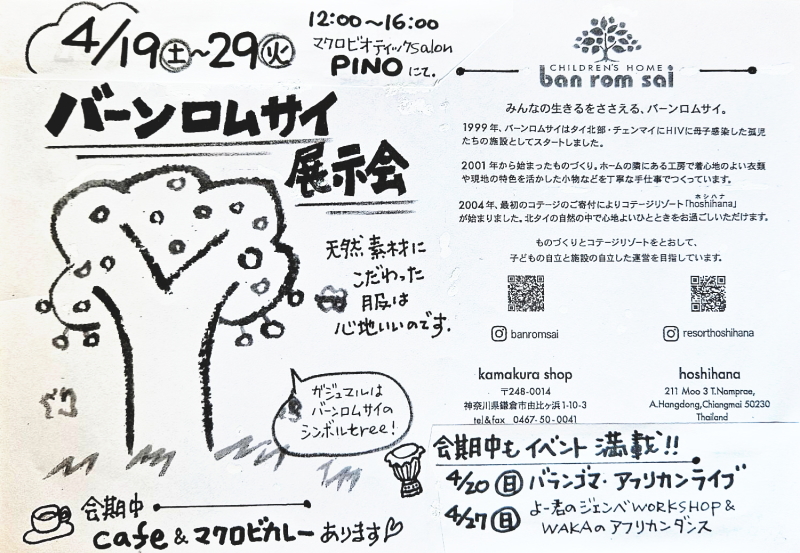 4/19(土)~29(火)
12:00~16:00
マクロビオティックsalon
PINOにて.
バーンロムサイ
展示会
天然素材に
こだわった
服は
心地いいのです.
ガジュマルは
バーンロムサイの
シンボルtree!
会期中
cafe&マクロビカレーあります♡
CHILDREN'S HOME
ban rom sai
みんなの生きるをささえる、バーンロムサイ。
1999年、バーンロムサイはタイ北部・チェンマイにHIVに母子感染した孤児
たちの施設としてスタートしました。
2001年から始まったものづくり。ホームの隣にある工房で着心地のよい衣類
や現地の特色を活かした小物などを丁寧な手仕事でつくっています。
ホシハナ
2004年、最初のコテージのご寄付によりコテージリゾート「hoshihana」
が始まりました。北タイの自然の中で心地よいひとときをお過ごしいただけます。
ものづくりとコテージリゾートをとおして、
子どもの自立と施設の自立した運営を目指しています。
banromsai
resorthoshihana
kamakura shop
〒248-0014
神奈川県鎌倉市由比ヶ浜1-10-3
tel&fax 0467-50-0041
hoshihana
211 Moo 3 T.Namprae,
A.Hangdong,Chiangmai 50230
Thailand
会期中もイベント満載!!
4/20(日) バランゴマ・アフリカンライブ
4/27(日) よー君のジェンベWORKSHOP&
WAKAのアフリカンダンス